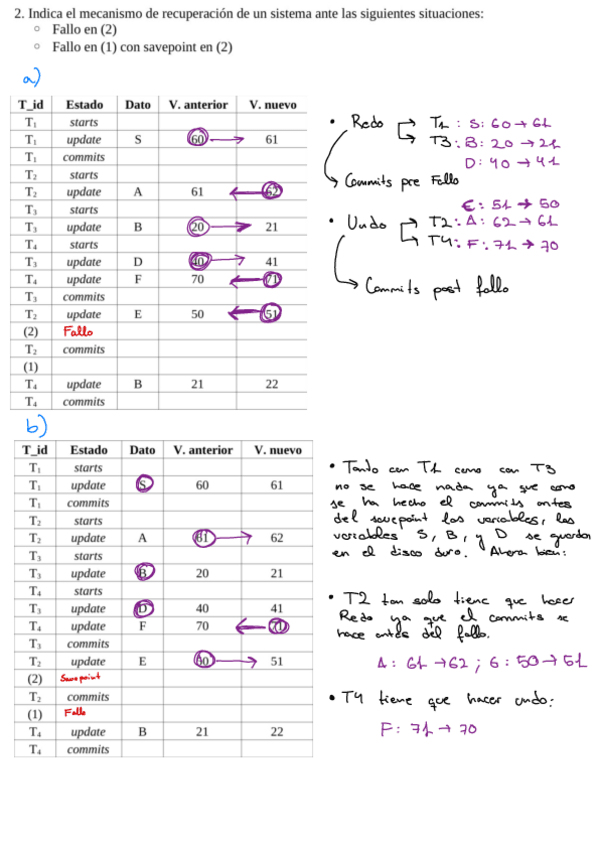 2. Indica el mecanismo de recuperación de un sistema ante las siguientes situaciones:
○ Fallo en (2)
○ Fallo en (1) con savepoint en (2)
a)
T_id Estado Dato V. anterior V. nuevo
T₁ starts
T₁ update S 60 61
T₁ commits
T₂ starts
T₂ update A 61 62
T₃ starts
T₃ update B 20 21
T₄ starts
T₃ update D 40 41
T₄ update F 70 71
T₃ commits
T₂ update E 50 51
(2) Fallo
T₂ commits
(1)
T₄ update B 21 22
T₄ commits
• Redo → T1 : S: 60 → 61
→ T3 : B: 20 → 21
D: 40 → 41
Commits pre Fallo
E: 51 → 50
• Undo → T2: A: 62 → 61
→ T4: F: 71 → 70
Commits post fallo
b)
T_id Estado Dato V. anterior V. nuevo
T₁ starts
T₁ update S 60 61
T₁ commits
T₂ starts
T₂ update A 61 62
T₃ starts
T₃ update B 20 21
T₄ starts
T₃ update D 40 41
T₄ update F 70 71
T₃ commits
T₂ update E 50 51
(2) Savepoint
T₂ commits
(1) Fallo
T₄ update B 21 22
T₄ commits
• Tanto con T1 como con T3
no se hace nada ya que como
se ha hecho el commits antes
del savepoint las variables, las
variables S, B, y D se guardan
en el disco duro. Ahora bien:
• T2 tan solo tiene que hacer
Redo ya que el commits se
hace antes del fallo.
A: 61 → 62 ; 6 : 50 → 51
• T4 tiene que hacer undo:
F: 71 → 70